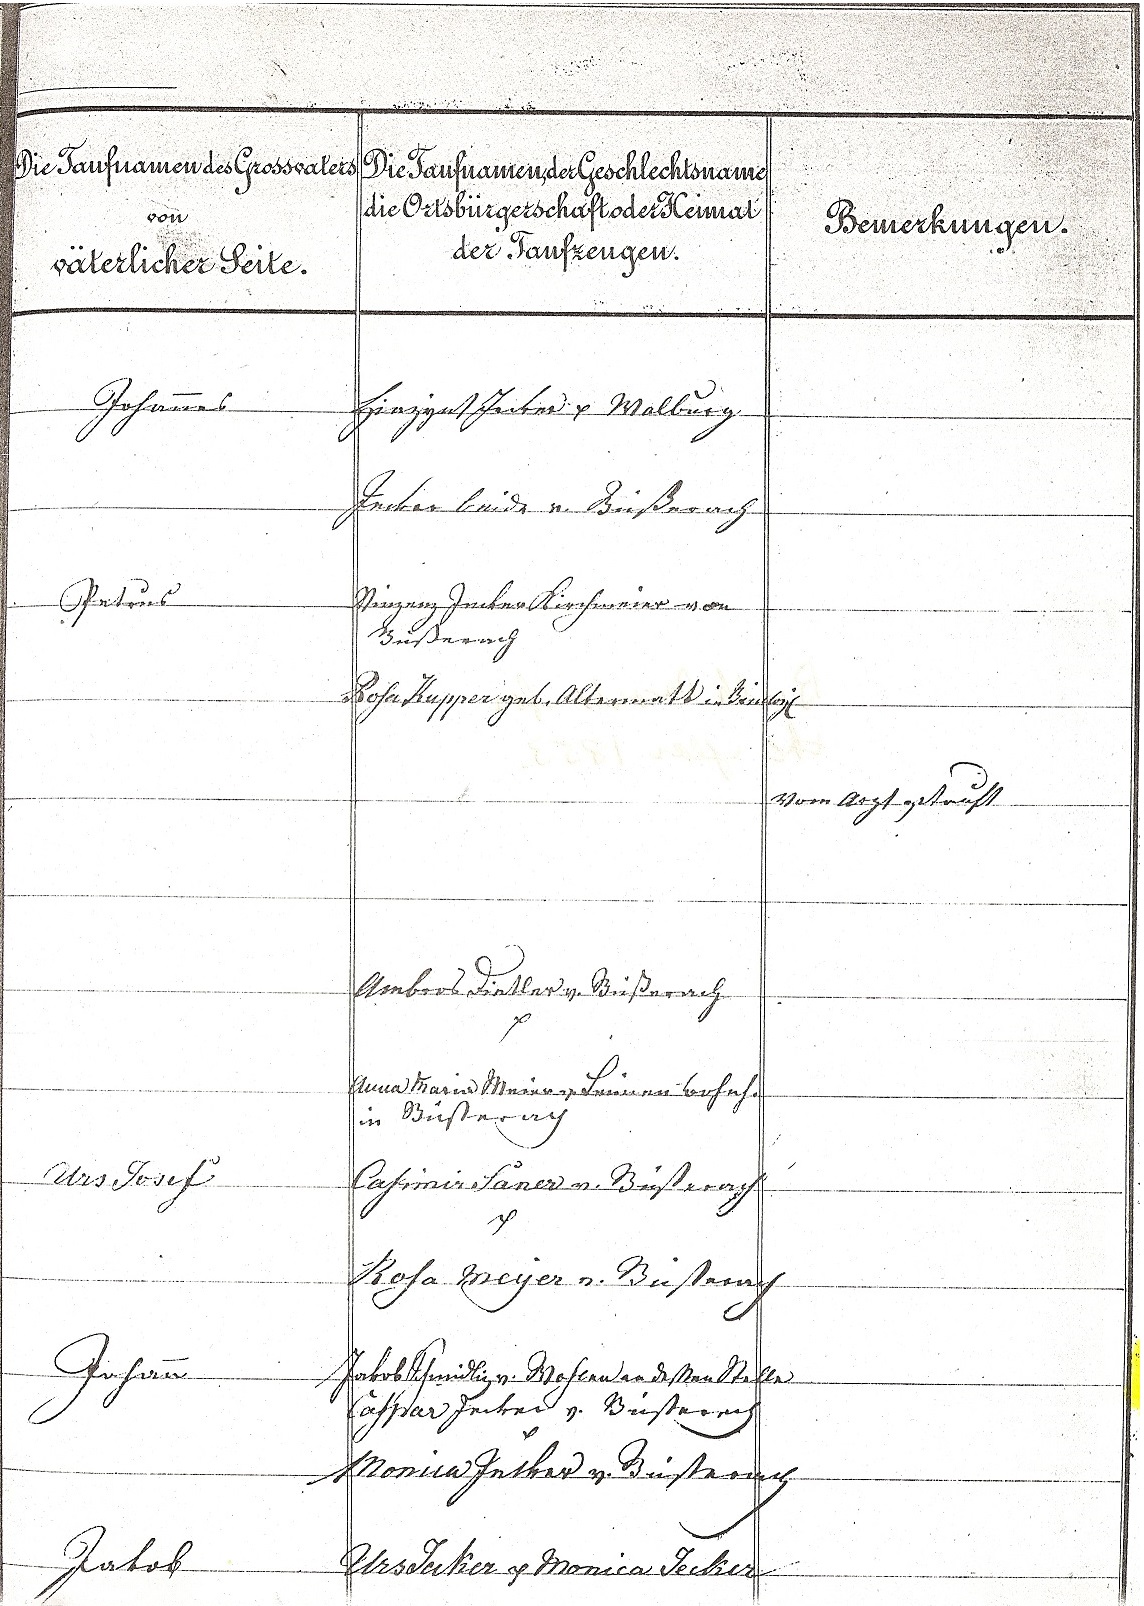 Die Taufnamen des Grossvaters
von
väterlicher Seite.
Die Taufnamen, der Geschlechtsname
die Ortsbürgerschaft oder Heimat
der Taufzeugen.
Bemerkungen.
Johannes
Hiazynt Jecker & Walburg
Jecker beide v. Büßerach
Petrus
Vinzenz Jecker Kirchmeier von
Büßerach
Rosa Kupper geb. Altermatt in
vom Arzt getauft
Ambros Dietler v. Büßerach
&
Anna Maria Meier v. wohnh.
in Büsserach
Urs Josef
Casimir Saner v. Büsserach
&
Rosa Meyer v. Büsserach
Johann
Jakob Schmidlin v. Wahlen an dessen Stelle
Caspar Jecker v. Büsserach
&
Monica Jecker v. Büsserach
Jakob
Urs Jecker & Monica Jecker